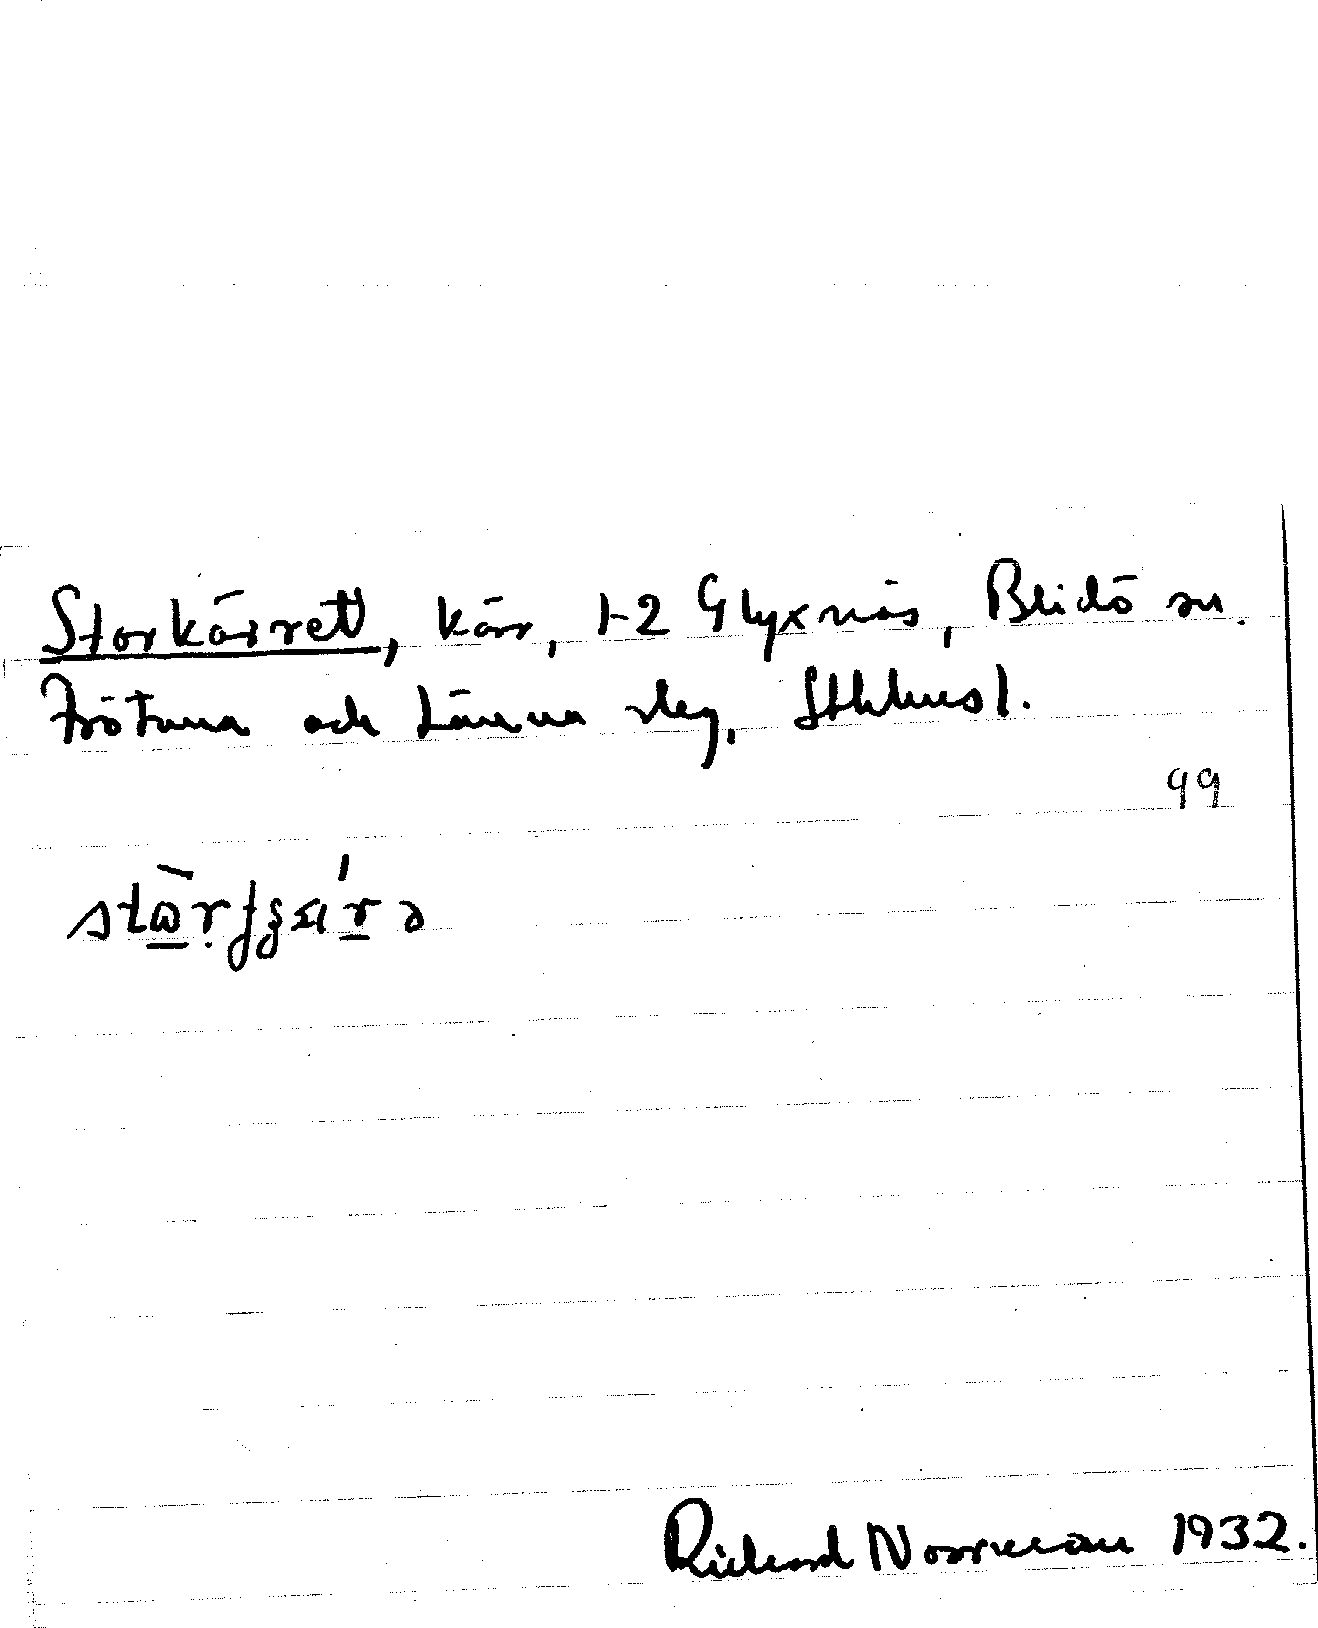 Storkärret, kärr, 1-2 Glyxnäs, Blidö sn.
Frötuna och Länna skg, Sthlmsl.
99
Richard Norrman 1932.